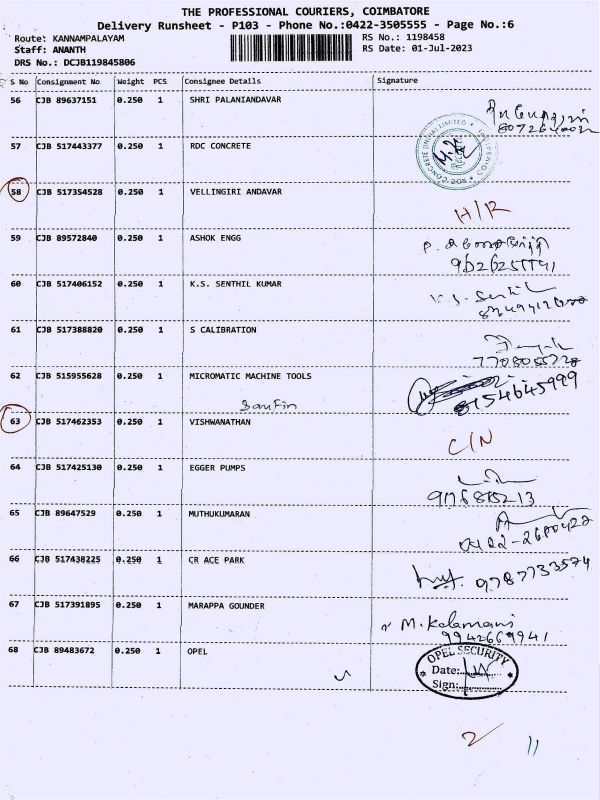 THE PROFESSIONAL COURIERS, COIMBATORE
Delivery Runsheet - P103 - Phone No.:0422-3505555 - Page No.:6
Route: KANNAMPALAYAM RS No.: 1198458
Staff: ANANTH RS Date: 01-Jul-2023
DRS No.: DCJB119845806
S No Consignment No Weight PCS Consignee Details Signature
56 CJB 89637151 0.250 1 SHRI PALANIANDAVAR
57 CJB 517443377 0.250 1 RDC CONCRETE
58 CJB 517354528 0.250 1 VELLINGIRI ANDAVAR H/R
59 CJB 89572840 0.250 1 ASHOK ENGG
60 CJB 517406152 0.250 1 K.S. SENTHIL KUMAR
61 CJB 517388820 0.250 1 S CALIBRATION
7708055728
62 CJB 515955628 0.250 1 MICROMATIC MACHINE TOOLS
8754645999
63 CJB 517462353 0.250 1 VISHWANATHAN C/N
64 CJB 517425130 0.250 1 EGGER PUMPS
65 CJB 89647529 0.250 1 MUTHUKUMARAN
66 CJB 517438225 0.250 1 CR ACE PARK 9787733574
67 CJB 517391895 0.250 1 MARAPPA GOUNDER M. Kalamani
9942669941
68 CJB 89483672 0.250 1 OPEL OPEL SECURITY
Date:
Sign:
2 11